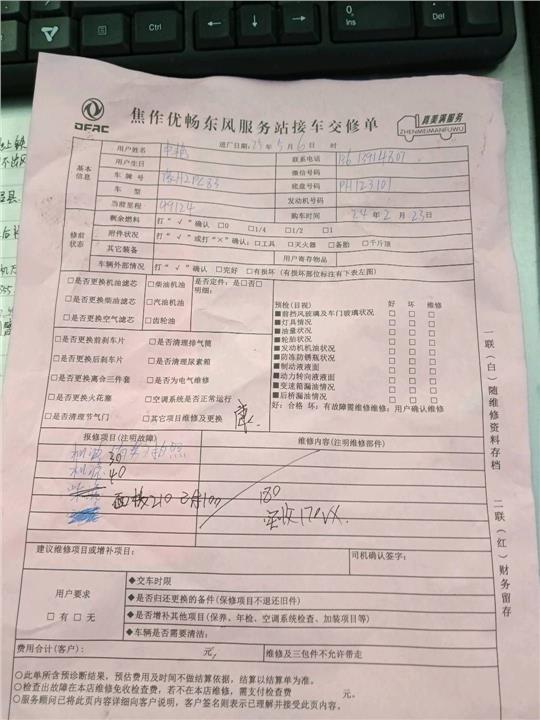 Ctrl
Ins
Del
DFAC
焦作优畅东风服务站接车交修单
真美满服务
ZHENMEIMANFUWU
基本信息
用户姓名
进厂日期: 25年5月6日
联系电话
用户生日
微信号码
车牌号
底盘号码 PH123101
车型
发动机号
当前里程 99124
购车时间 24年2月23日
修前状态
剩余燃料 打“√”确认 □0 □1/4 □1/2 □1
附件状况 打“√”或打“×”确认:□工具 □灭火器 □备胎 □千斤顶
其它装备
用户寄存物品
车辆外部情况 打“√”确认 □完好 □有损坏 (有损坏部位标注有下表左图)
□是否更换机油滤芯 □柴油机油 是否定件: 是□否□
明细:
□是否更换柴油滤芯 □汽油机油
□是否更换空气滤芯 □齿轮油
□是否更换前刹车片 □是否清理排气筒
□是否更换后刹车片 □是否清理尿素箱
□是否更换离合三件套 □是否为电气维修
□是否更换火花塞 □空调系统是否正常运行
□是否清理节气门 □其它项目维修及更换
预检(目视) 好 坏 维修
■前挡风玻璃及车门玻璃状况 □ □ □
■灯具情况 □ □ □
■油量状况 □ □ □
■轮胎状况 □ □ □
■发动机机油状况 □ □ □
■防冻防锈瓶状况 □ □ □
■制动液液面 □ □ □
■动力转向液液面 □ □ □
■变速箱漏油情况 □ □ □
■后桥漏油情况 □ □ □
好: 合格 坏: 有故障需维修维修: 用户确认维修
报修项目(注明故障)
维修内容(注明维修部件)
机滤 30
机滤 40
210 100
180
实收170
建议维修项目或增补项目:
司机确认签字:
用户要求
□有 □无
◆交车时限
◆是否归还更换的备件(保修项目不退还旧件)
◆是否增补其他项目(保养、年检、空调系统检查、加装项目等)
◆车辆是否需要清洁:
费用合计(客户): 元,
维修及三包件不允许带走
○此单所含预诊断结果, 预估费用及时间不做结算依据, 结算以结算单为准。
○检查出故障在本店维修免收检查费, 若不在本店维修, 需支付检查费 元。
○服务顾问已将此页内容详细向客户说明, 客户签名则表示已理解并接受此页内容。
一联(白)随维修资料存档
二联(红)财务留存